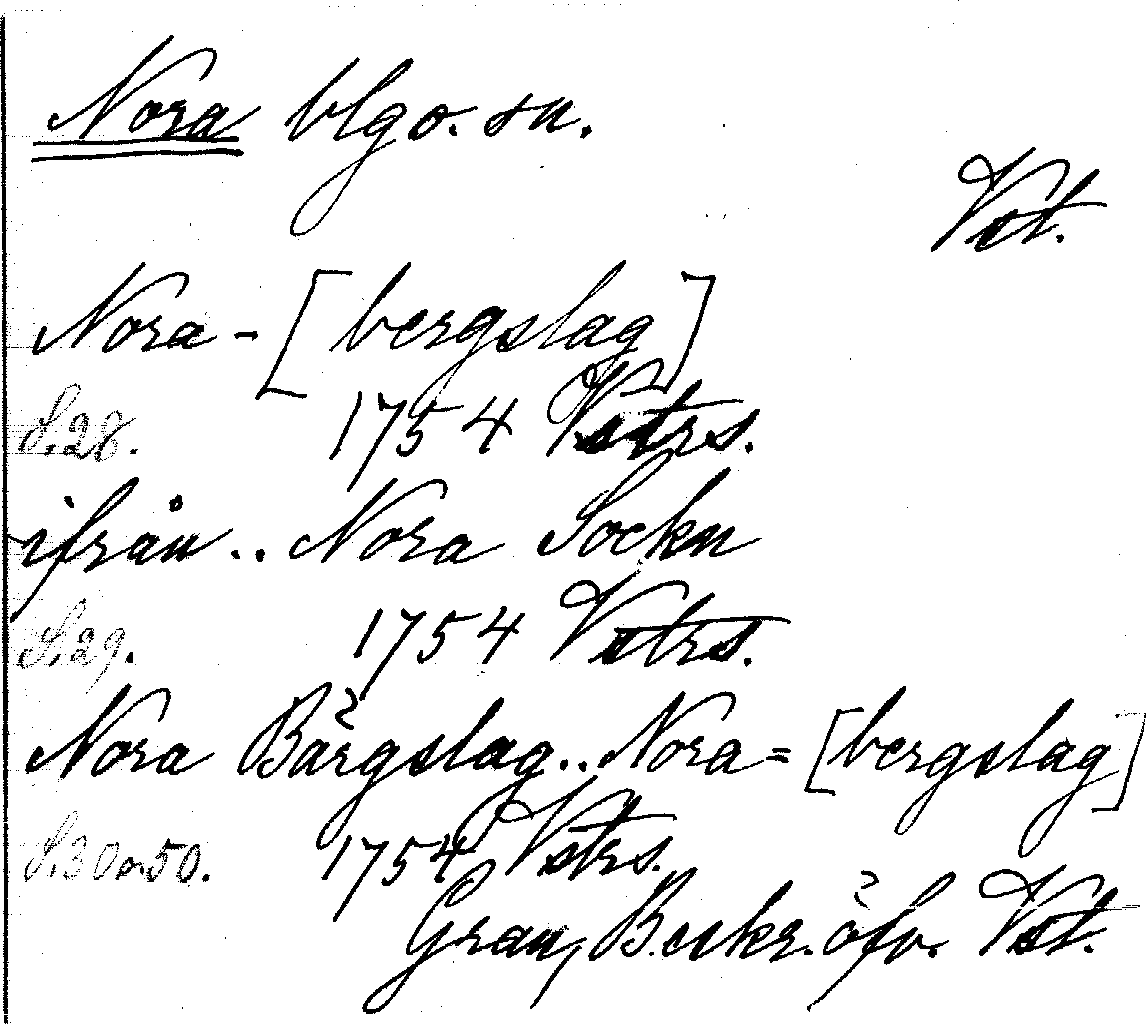 Nora blgo. sn.
Vst.
Nora - [bergslag]
S. 28. 1754 Vstrs.
ifrån .. Nora Sockn
S. 29. 1754 Vstrs.
Nora Bärgslag .. Nora = [bergslag]
S. 30 o. 50. 1754 Vstrs.
Grau, Beskr. öfv. Vst.